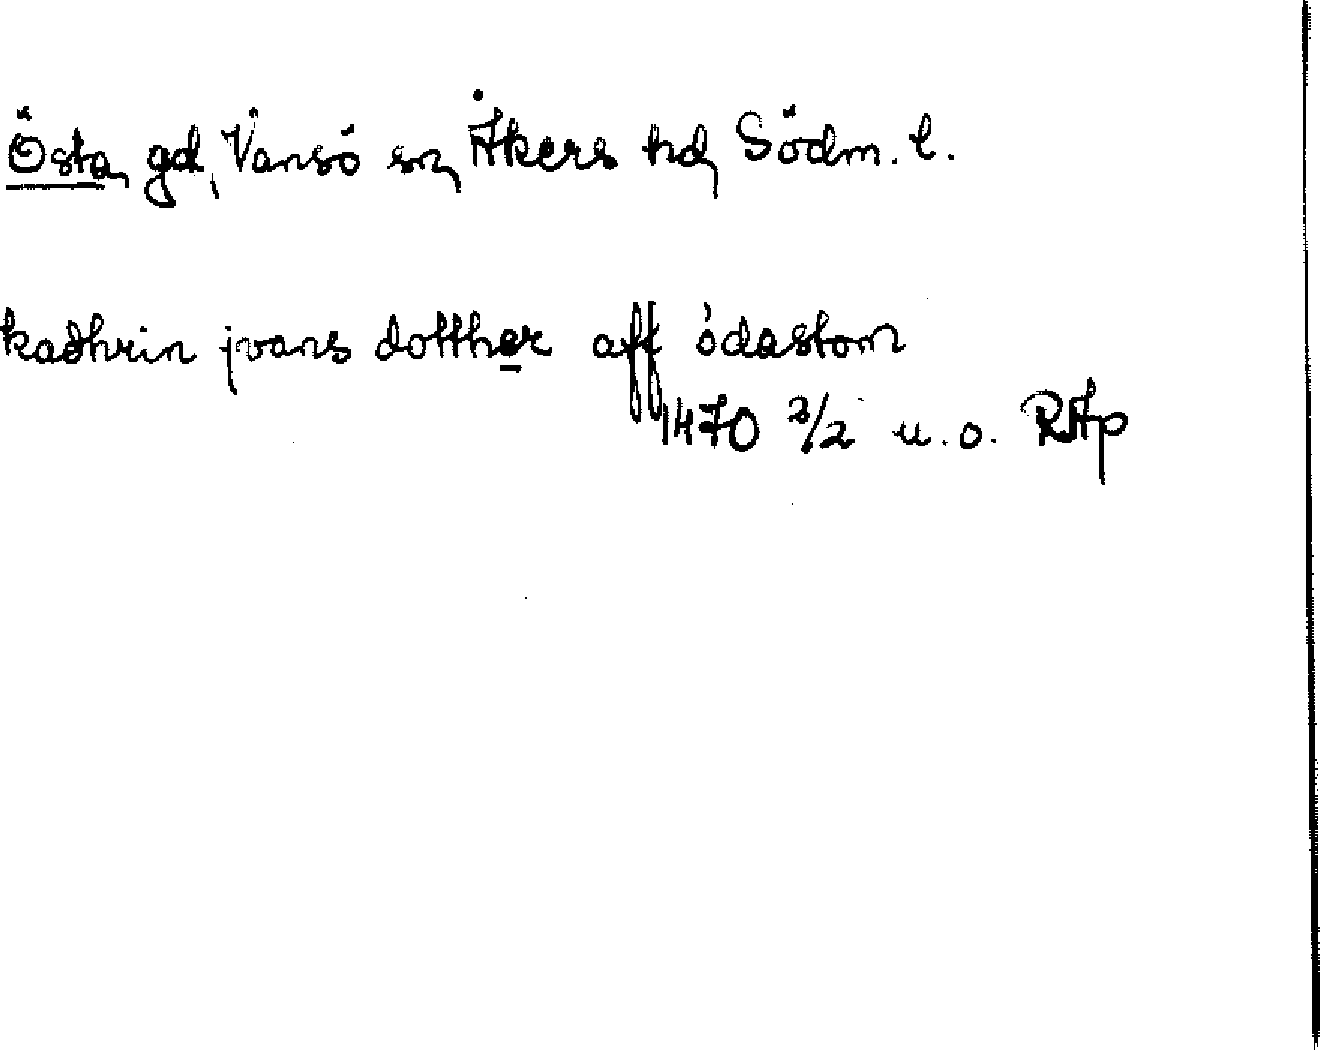 Östa, gd, Vansö sn, Åkers hd, Södm. l.
kadhrin jvans dotther aff ódastom
1470 2/2 u.o. RAp